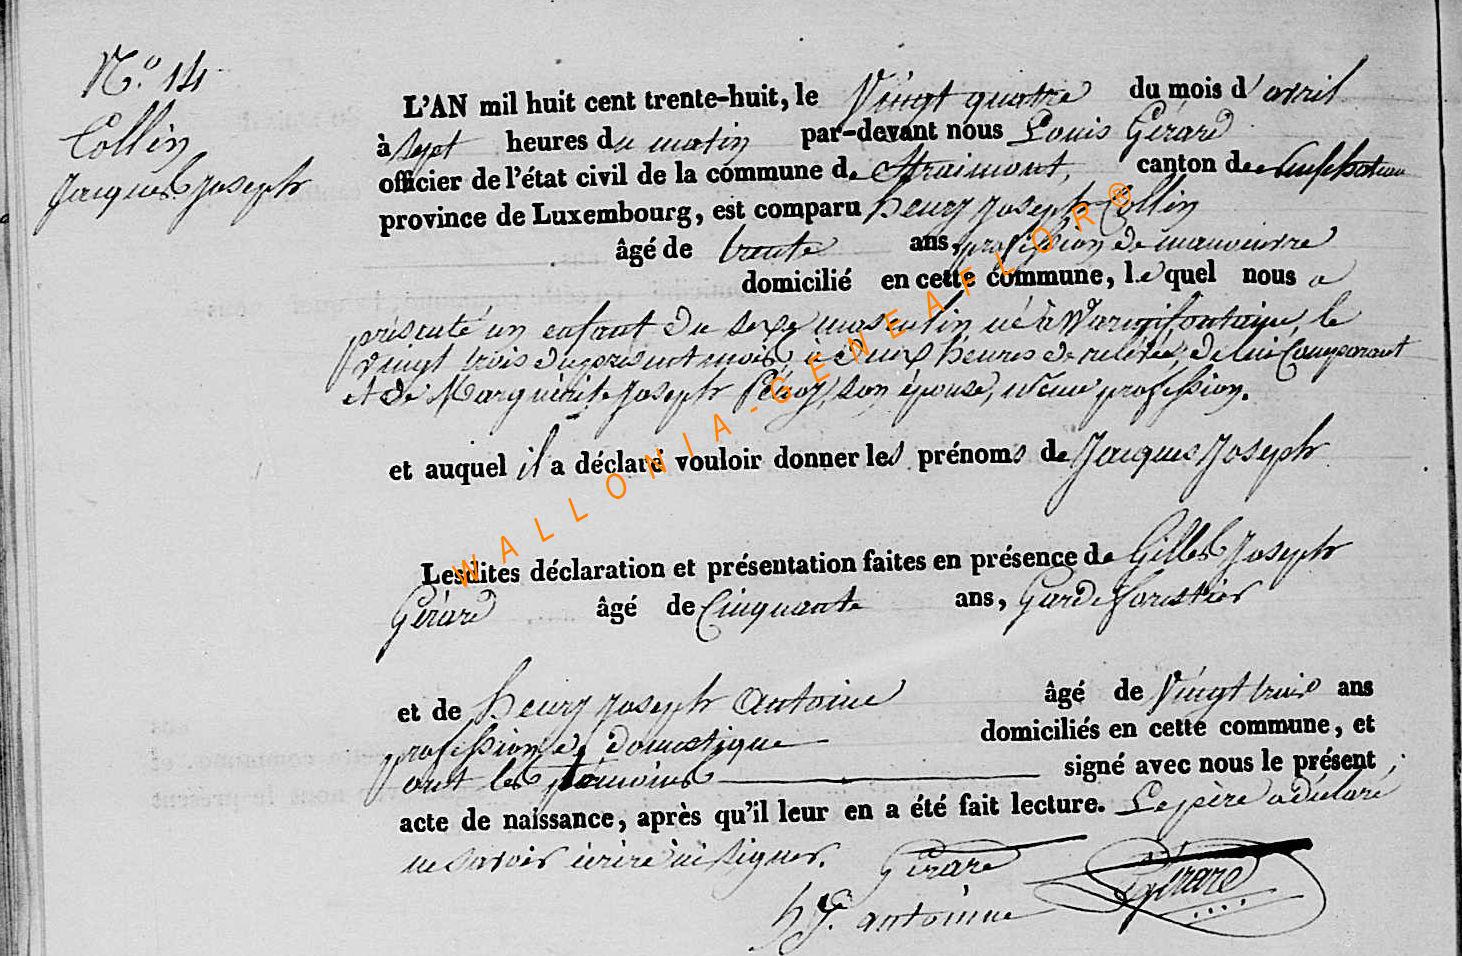 N.º 14
Collin
Jacques Joseph
L'AN mil huit cent trente-huit, le Vingt quatre du mois d'avril
à sept heures du matin par-devant nous Louis Gérard
officier de l'état civil de la commune de Straimont, canton de Neufchateau
province de Luxembourg, est comparu henry Joseph Collin
âgé de trente ans, profession de manoeuvre
domicilié en cette commune, lequel nous a
présenté un enfant du sexe masculin né à Warigifontaine, le
vingt trois du présent mois, à deux heures de relevée, de lui Comparant
et de Marguerite Joseph Pénoy, son épouse, même profession.
et auquel il a déclaré vouloir donner les prénoms de Jacques Joseph
Lesdites déclaration et présentation faites en présence de Gilles Joseph
Gérard âgé de Cinquante ans, Garde forestier
et de henry Joseph antoine âgé de Vingt trois ans
profession de domestique domiciliés en cette commune, et
ont les témoins signé avec nous le présent
acte de naissance, après qu'il leur en a été fait lecture. Le père a déclaré
ne savoir écrire ni signer. Gérard
h J. antoinne L Gérard
WALLONIA-GENEAFLOR®